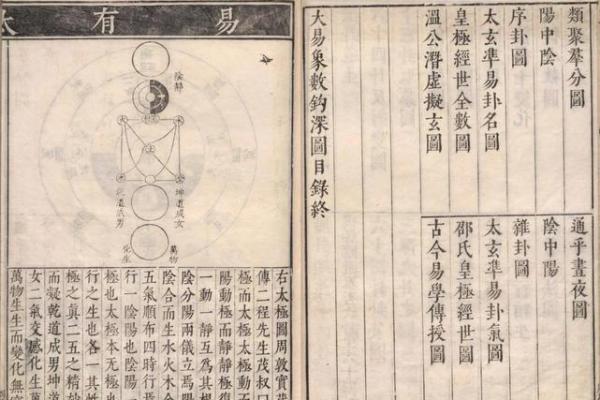 類聚羣分圖
通乎晝夜圖
陽中陰
陰中陽
序卦圖
雜卦圖
太玄準易卦名圖
太玄準易卦氣圖
皇極經世全數圖
邵氏皇極經世圖
溫公潛虛擬玄圖
古今易學傳授圖
大易象數鈎深圖目錄終
易有太
陰靜
坤道成女
乾道成男
萬物
化生
右太極圖周敦實茂
傳二程先生茂叔曰
極而太極太極動而
陽動極而靜靜極復
一動一靜互為其根
陰分陽兩儀立焉陽
陰合而生水火木金
五氣順布四時行焉
行一陰陽也陰陽
極也太極本無極也
行之生也各一其性
極之真二五之精妙
而凝乾道成男坤道
女二氣交感化生萬
萬物生生而變化無窮